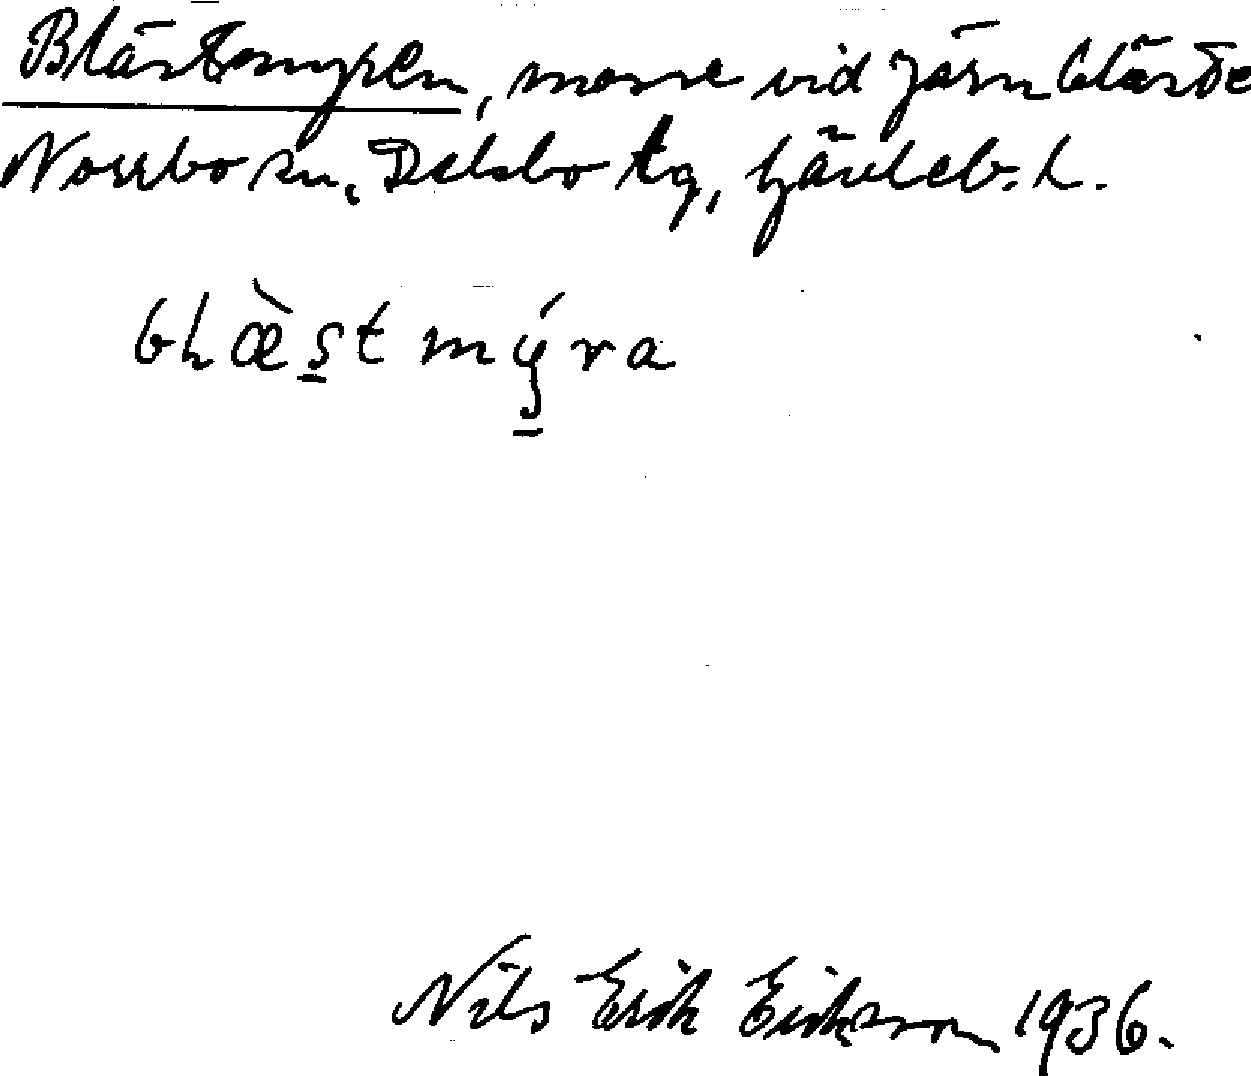 Blästmyren, mosse vid Järnbläste
Norrbo sn, Delsbo tg, Gävleb. l.
blæ̀s̠t mý̠ra
Nils Erik Erikson 1936.